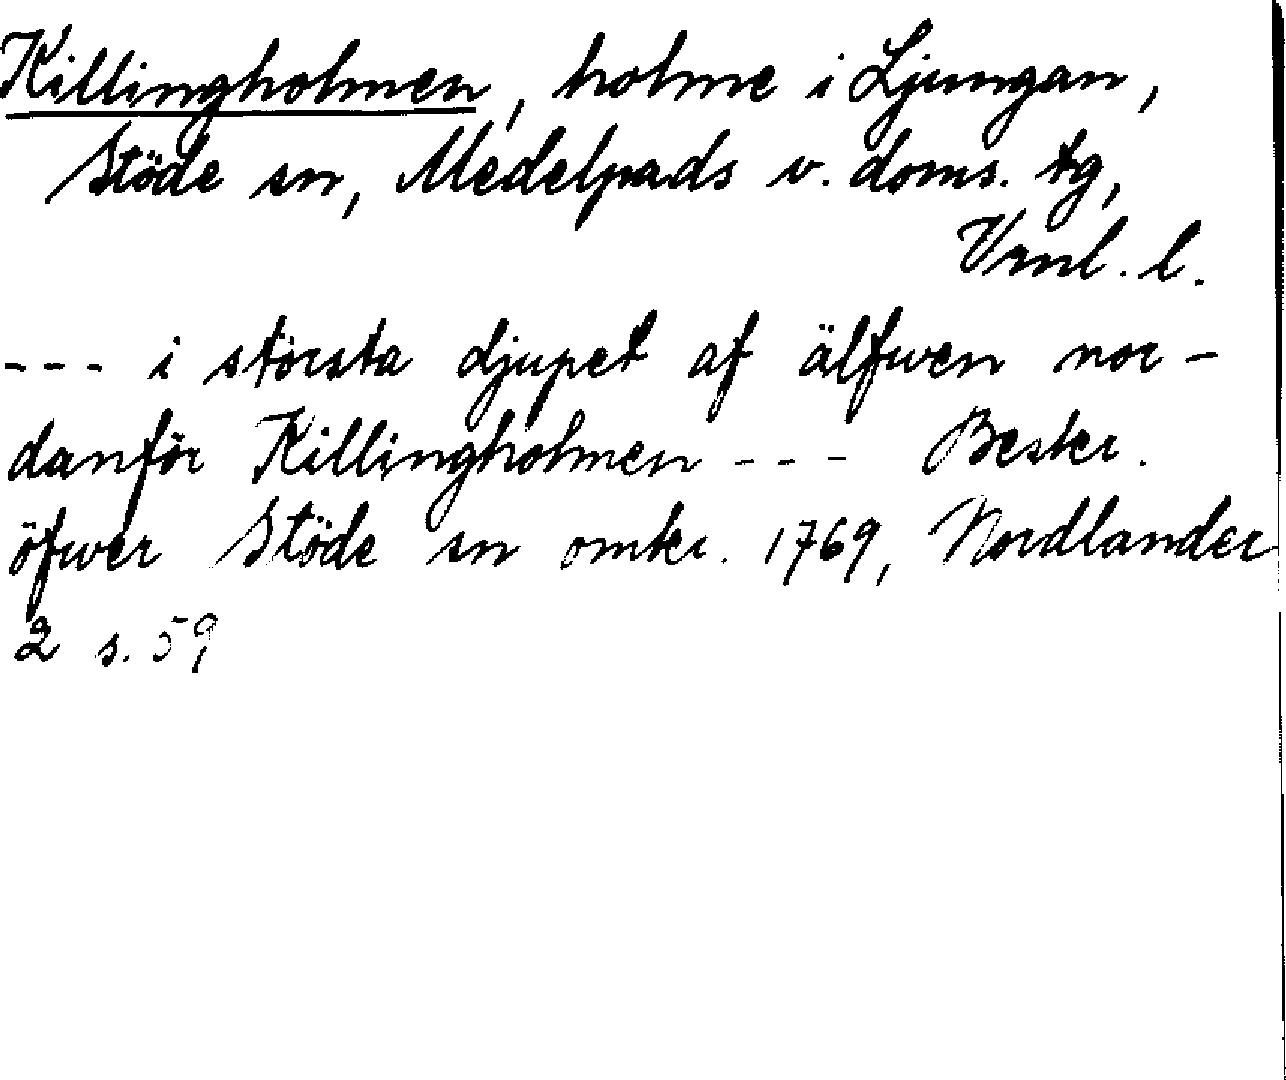 Killingholmen, holme i Ljungan,
Stöde sn, Medelpads v. doms. tg,
Vrnl. l.
--- i största djupet af älfwen nor-
danför Killingholmen --- Beskr.
öfwer Stöde sn omkr. 1769, Nordlander
2 s. 59